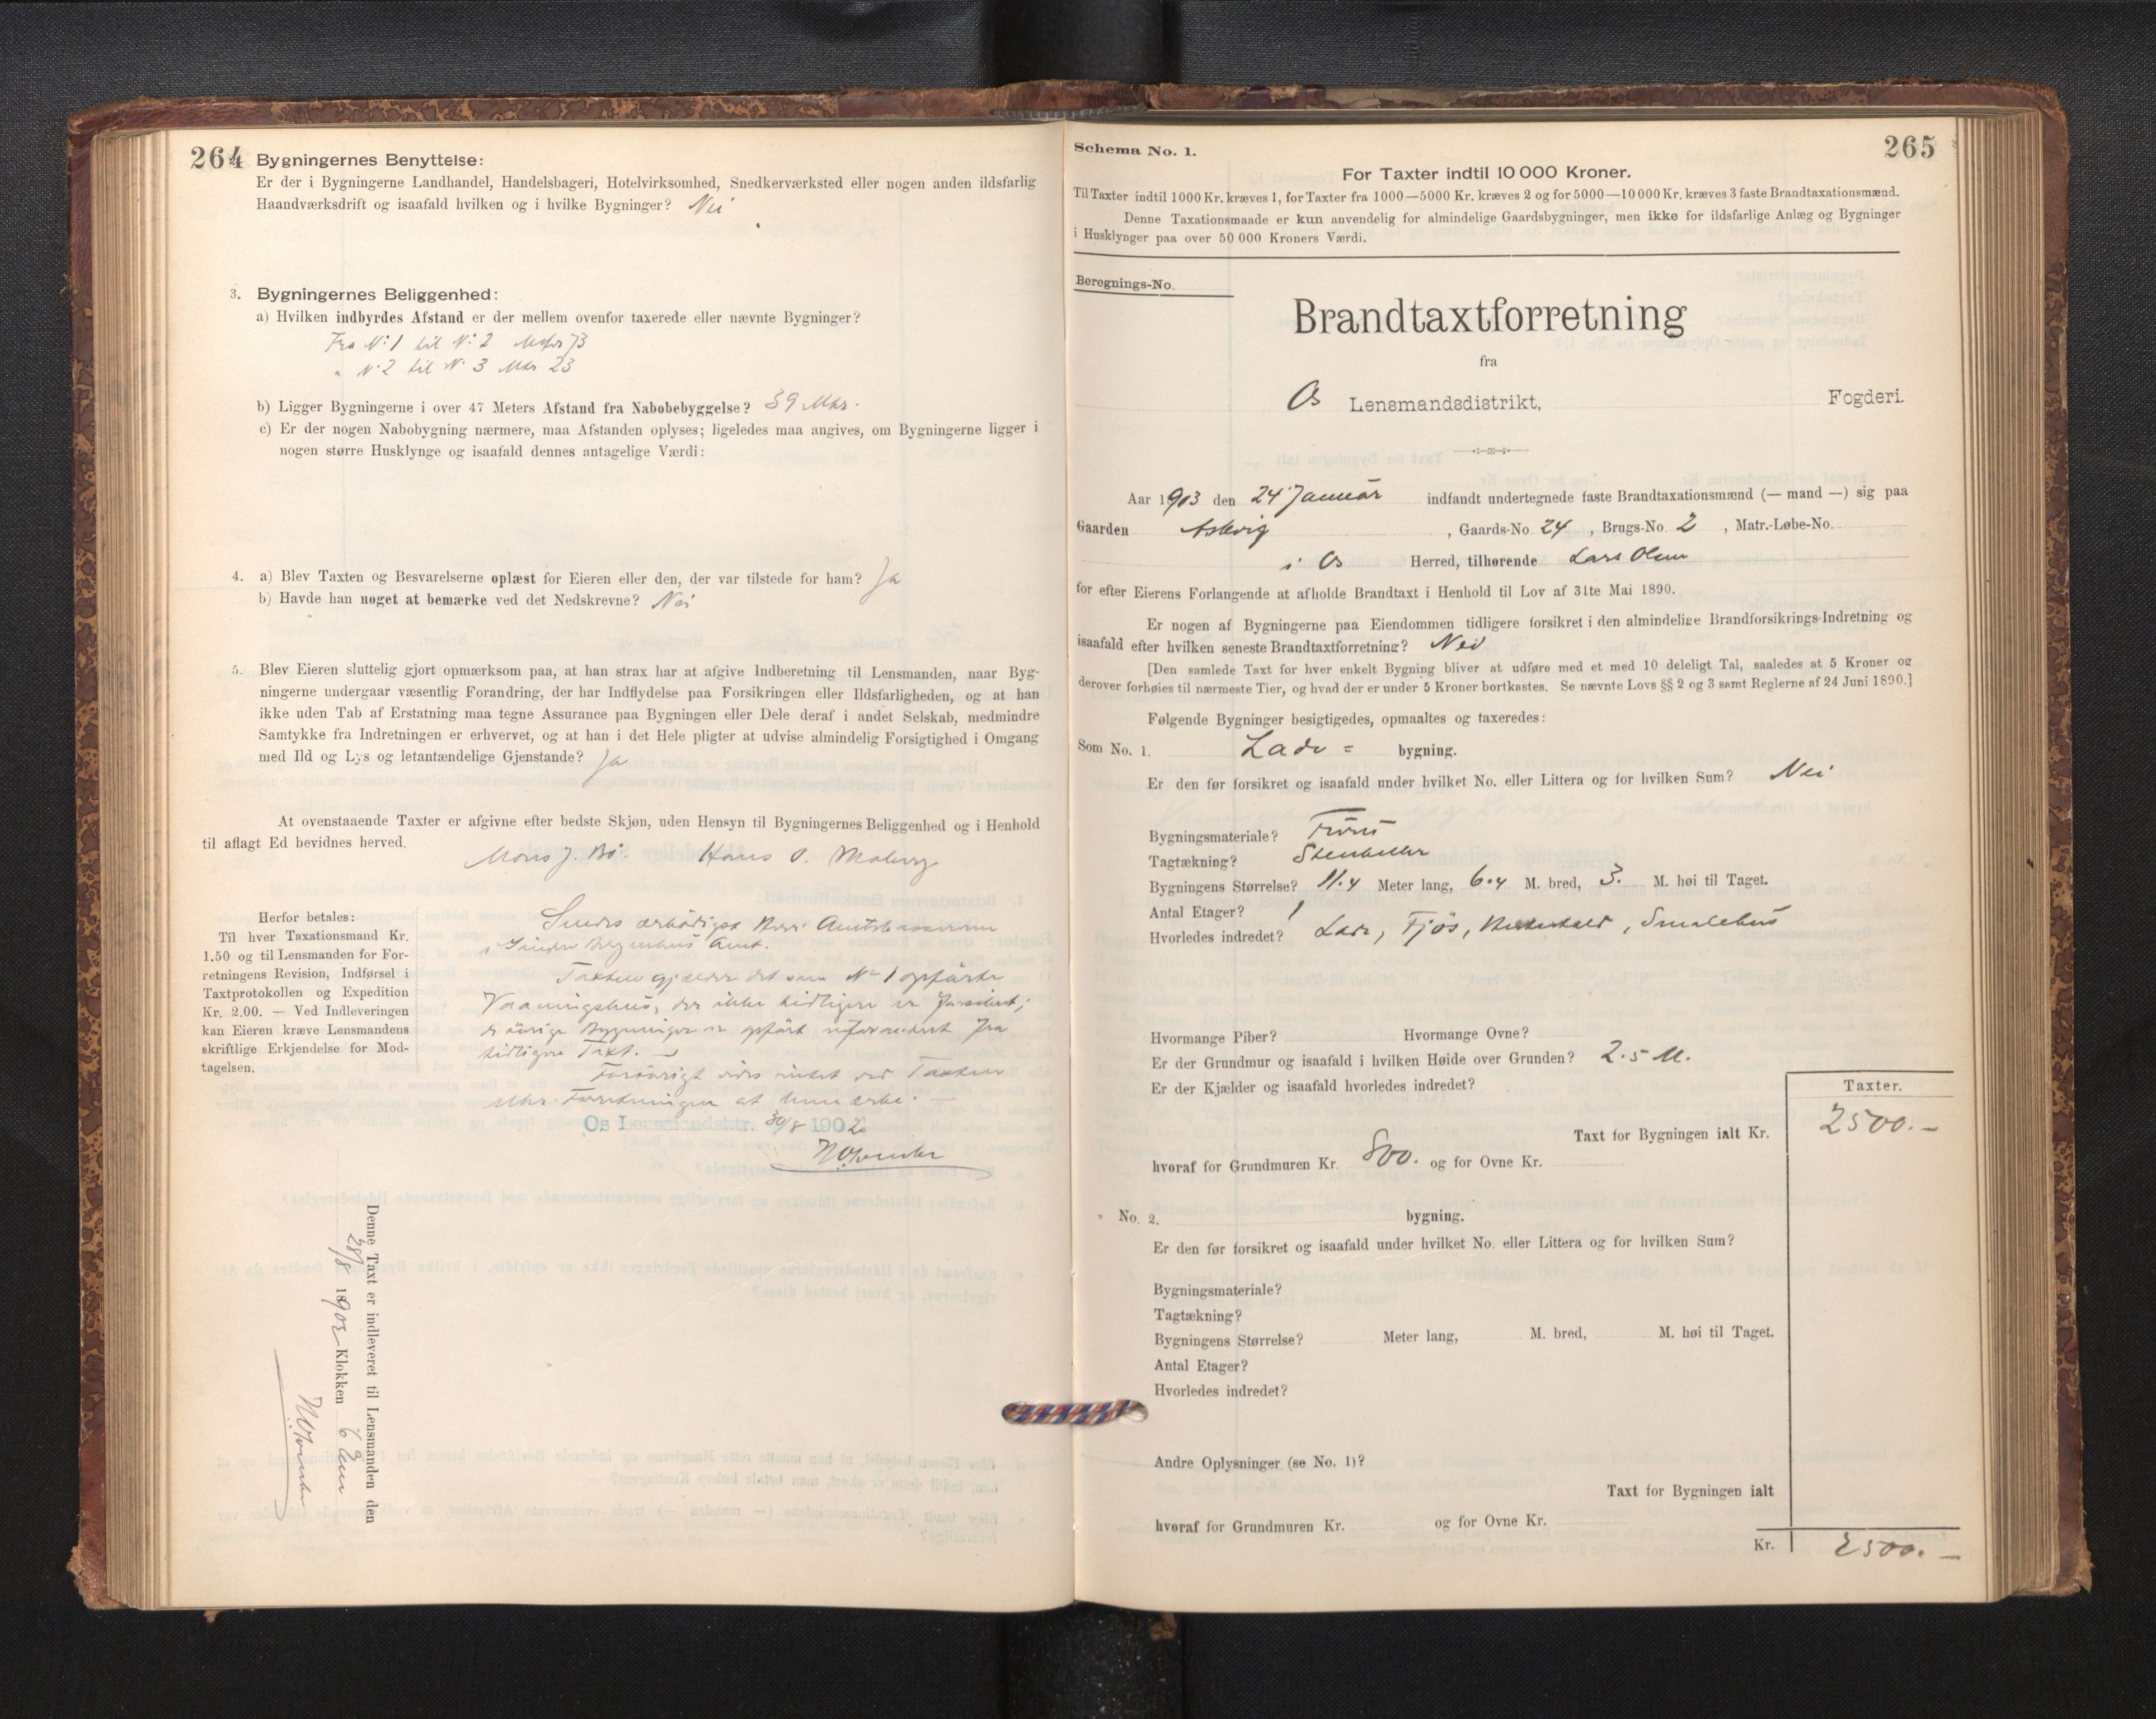 264
Bygningernes Benyttelse:
Er der i Bygningerne Landhandel, Handelsbageri, Hotelvirksomhed, Snedkerværksted eller nogen anden ildsfarlig
Haandværksdrift og isaafald hvilken og i hvilke Bygninger? Nei
3. Bygningernes Beliggenhed:
a) Hvilken indbyrdes Afstand er der mellem ovenfor taxerede eller nævnte Bygninger?
Fra N: 1 til N: 2 73
" N: 2 til N: 3 Mtr 23
b) Ligger Bygningerne i over 47 Meters Afstand fra Nabobebyggelse? 39 Mtr.
c) Er der nogen Nabobygning nærmere, maa Afstanden oplyses; ligeledes maa angives, om Bygningerne ligger i
nogen større Husklynge og isaafald dennes antagelige Værdi:
4. a) Blev Taxten og Besvarelserne oplæst for Eieren eller den, der var tilstede for ham? Ja
b) Havde han noget at bemærke ved det Nedskrevne? Nei
5. Blev Eieren sluttelig gjort opmærksom paa, at han strax har at afgive Indberetning til Lensmanden, naar Byg-
ningerne undergaar væsentlig Forandring, der har Indflydelse paa Forsikringen eller Ildsfarligheden, og at han
ikke uden Tab af Erstatning maa tegne Assurance paa Bygningen eller Dele deraf i andet Selskab, medmindre
Samtykke fra Indretningen er erhvervet, og at han i det Hele pligter at udvise almindelig Forsigtighed i Omgang
med Ild og Lys og letantændelige Gjenstande? Ja
At ovenstaaende Taxter er afgivne efter bedste Skjøn, uden Hensyn til Bygningernes Beliggenhed og i Henhold
til aflagt Ed bevidnes herved.
Mons J. Bø. Hans O. Moberg
Herfor betales:
Til hver Taxationsmand Kr.
1.50 og til Lensmanden for For-
retningens Revision, Indførsel i
Taxtprotokollen og Expedition
Kr. 2.00. — Ved Indleveringen
kan Eieren kræve Lensmandens
skriftlige Erkjendelse for Mod-
tagelsen.
Sendes ærbødigst Herr Amtskassereren
i Søndre Bergenhus Amt.
Taxten gjælder det som No 1 opførte
Vaaningshus, der ikke tidligere er forsikret;
de øvrige Bygninger er opført uforandret fra
tidligere Taxt. —
Forøvrigt vides intet ved Taxten
eller Forretningen at bemærke. —
Os Lensmandsktr. 30/8 1902
Denne Taxt er indleveret til Lensmanden den
28/8 1902 Klokken 6 Em
265
Schema No. 1.
For Taxter indtil 10 000 Kroner.
Til Taxter indtil 1000 Kr. kræves 1, for Taxter fra 1000—5000 Kr. kræves 2 og for 5000—10 000 Kr. kræves 3 faste Brandtaxationsmænd.
Denne Taxationsmaade er kun anvendelig for almindelige Gaardsbygninger, men ikke for ildsfarlige Anlæg og Bygninger
i Husklynger paa over 50 000 Kroners Værdi.
Beregnings-No.
Brandtaxtforretning
fra
Os Lensmandsdistrikt, Fogderi.
Aar 1903 den 24 Januar indfandt undertegnede faste Brandtaxationsmænd (— mand —) sig paa
Gaarden Askvig, Gaards-No. 24, Brugs-No. 2, Matr.-Løbe-No.
i Os Herred, tilhørende Lars Olsen
for efter Eierens Forlangende at afholde Brandtaxt i Henhold til Lov af 31te Mai 1890.
Er nogen af Bygningerne paa Eiendommen tidligere forsikret i den almindelige Brandforsikrings-Indretning og
isaafald efter hvilken seneste Brandtaxtforretning? Nei
[Den samlede Taxt for hver enkelt Bygning bliver at udføre med et med 10 deleligt Tal, saaledes at 5 Kroner og
derover forhøies til nærmeste Tier, og hvad der er under 5 Kroner bortkastes. Se nævnte Lovs §§ 2 og 3 samt Reglerne af 24 Juni 1890.]
Følgende Bygninger besigtigedes, opmaaltes og taxeredes:
Som No. 1. Lade = bygning.
Er den før forsikret og isaafald under hvilket No. eller Littera og for hvilken Sum? Nei
Bygningsmateriale?
Tagtækning? Stenheller
Bygningens Størrelse? 11.4 Meter lang, 6.4 M. bred, 3. M. høi til Taget.
Antal Etager? 1
Hvorledes indredet? Lade, Fjøs, , Smalehus
Hvormange Piber? Hvormange Ovne?
Er der Grundmur og isaafald i hvilken Høide over Grunden? 2.5 M.
Er der Kjælder og isaafald hvorledes indredet?
Taxter.
Taxt for Bygningen ialt Kr. 2500.—
hvoraf for Grundmuren Kr. 800. og for Ovne Kr.
" No. 2. bygning.
Er den før forsikret og isaafald under hvilket No. eller Littera og for hvilken Sum?
Bygningsmateriale?
Tagtækning?
Bygningens Størrelse? Meter lang, M. bred, M. høi til Taget.
Antal Etager?
Hvorledes indredet?
Andre Oplysninger (se No. 1)?
Taxt for Bygningen ialt
hvoraf for Grundmuren Kr. og for Ovne Kr.
Kr. 2500.—